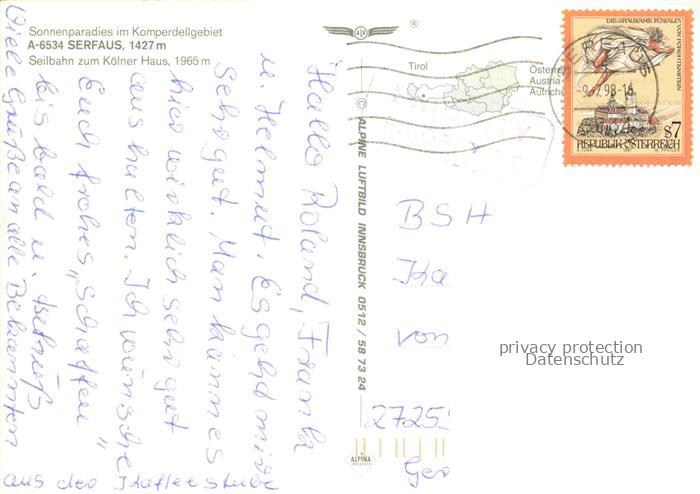 Sonnenparadies im Komperdellgebiet
A-6534 SERFAUS, 1427 m
Seilbahn zum Kölner Haus, 1965 m
Hallo Roland, Frank
u. Helmut. Es gehd mir
sehr gut. Man kann es
hier wirklich sehr gut
aushalten. Ich wünsche
Euch frohes „Schaffen"
bis bald u. tschüß
Viele Grüße an alle Bekannten
aus der Kaffeestube
®
Tirol
Österreich
Austria
Autriche
© ALPINE LUFTBILD INNSBRUCK 0512 / 58 73 24
ALPINA
DIE GRAUSAME ROSALIA
VON FORCHTENSTEIN
SERFAUS
98-1
S7
REPUBLIK ÖSTERREICH
BSH
Ka
von
privacy protection
Datenschutz
2725
Ger